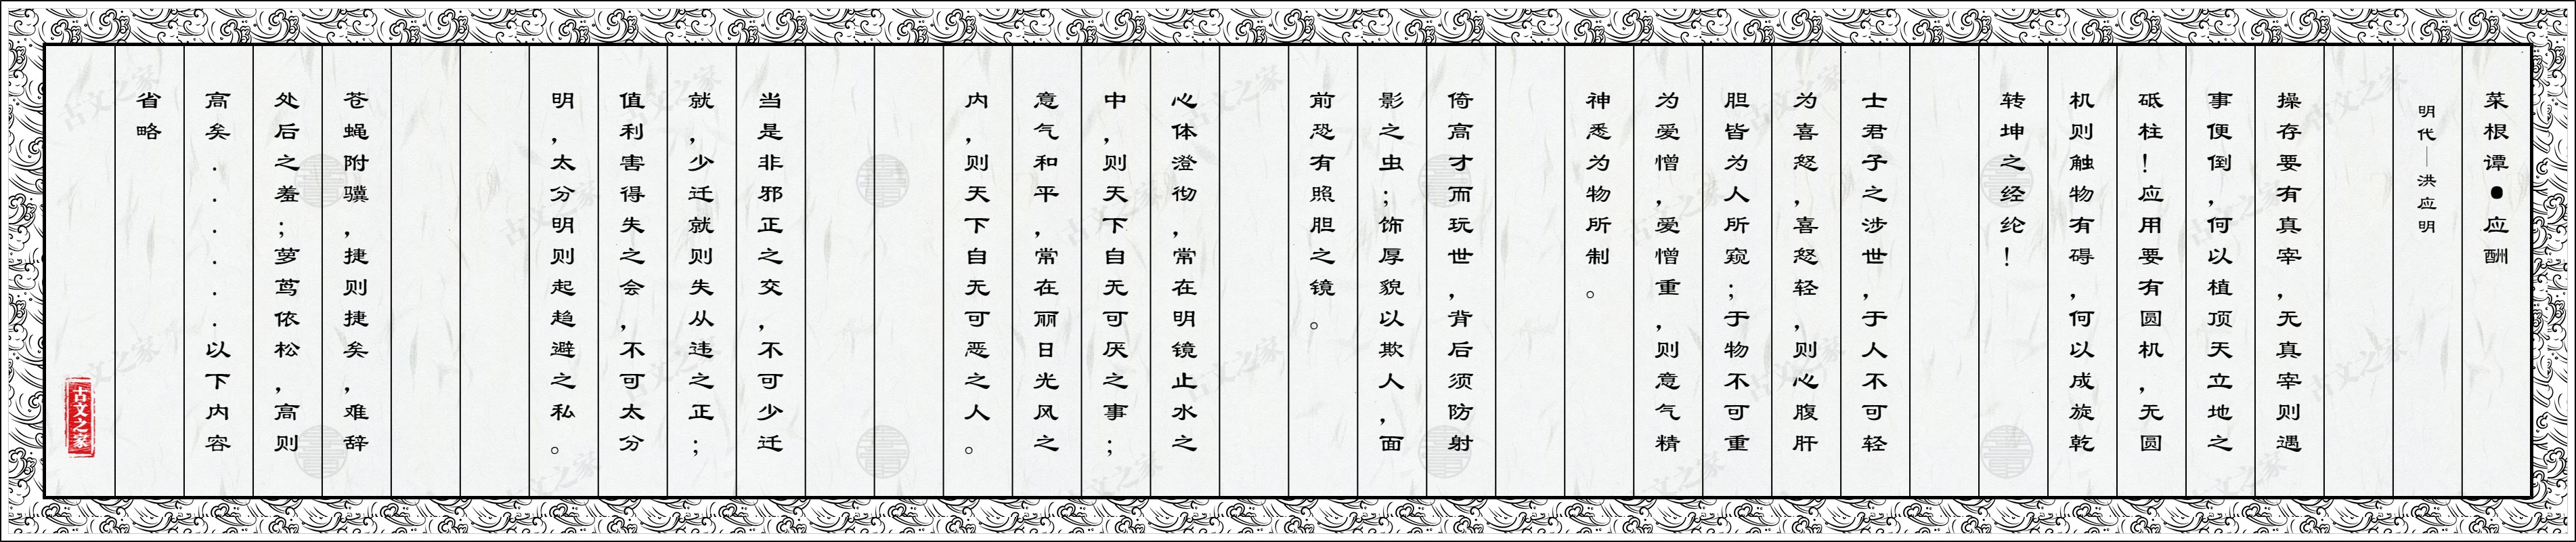 菜根谭●应酬
明代—洪应明
操存要有真宰，无真宰则遇
事便倒，何以植顶天立地之
砥柱！应用要有圆机，无圆
机则触物有碍，何以成旋乾
转坤之经纶！
士君子之涉世，于人不可轻
为喜怒，喜怒轻，则心腹肝
胆皆为人所窥；于物不可重
为爱憎，爱憎重，则意气精
神悉为物所制。
倚高才而玩世，背后须防射
影之虫；饰厚貌以欺人，面
前恐有照胆之镜。
心体澄彻，常在明镜止水之
中，则天下自无可厌之事；
意气和平，常在丽日光风之
内，则天下自无可恶之人。
当是非邪正之交，不可少迁
就，少迁就则失从违之正；
值利害得失之会，不可太分
明，太分明则起趋避之私。
苍蝇附骥，捷则捷矣，难辞
处后之羞；萝茑依松，高则
高矣......以下内容
省略
古文之家